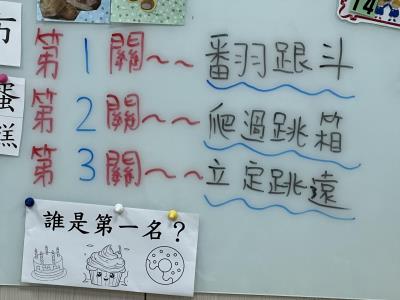 第1關~~番羽跟斗
第2關~~爬過跳箱
第3關~~立定跳遠
誰是第一名？
蛋
糕
14